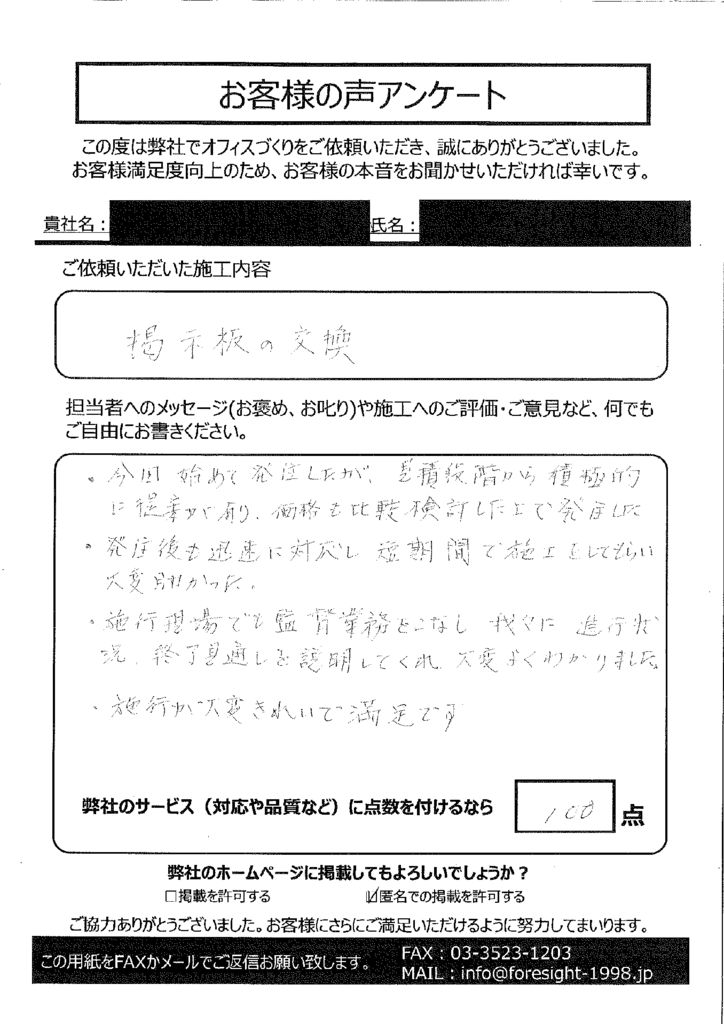 お客様の声アンケート
この度は弊社でオフィスづくりをご依頼いただき、誠にありがとうございました。
お客様満足度向上のため、お客様の本音をお聞かせいただければ幸いです。
貴社名： 氏名：
ご依頼いただいた施工内容
掲示板の交換
担当者へのメッセージ(お褒め、お叱り)や施工へのご評価・ご意見など、何でも
ご自由にお書きください。
・今回 始めて発注したが、見積段階から積極的
に提案が有り、価格も比較検討した上で発注した
・発注後も迅速に対応し 短期間で施工をしてもらい
大変助かった。
・施行現場でも監督業務をこなし 我々に 進行状
況、終了見通しを説明してくれ 大変よくわかりました
・施行が大変きれいで満足です
弊社のサービス（対応や品質など）に点数を付けるなら 100 点
弊社のホームページに掲載してもよろしいでしょうか？
□掲載を許可する ☑匿名での掲載を許可する
ご協力ありがとうございました。お客様にさらにご満足いただけるように努力してまいります。
この用紙をFAXかメールでご返信お願い致します。
FAX：03-3523-1203
MAIL：info@foresight-1998.jp